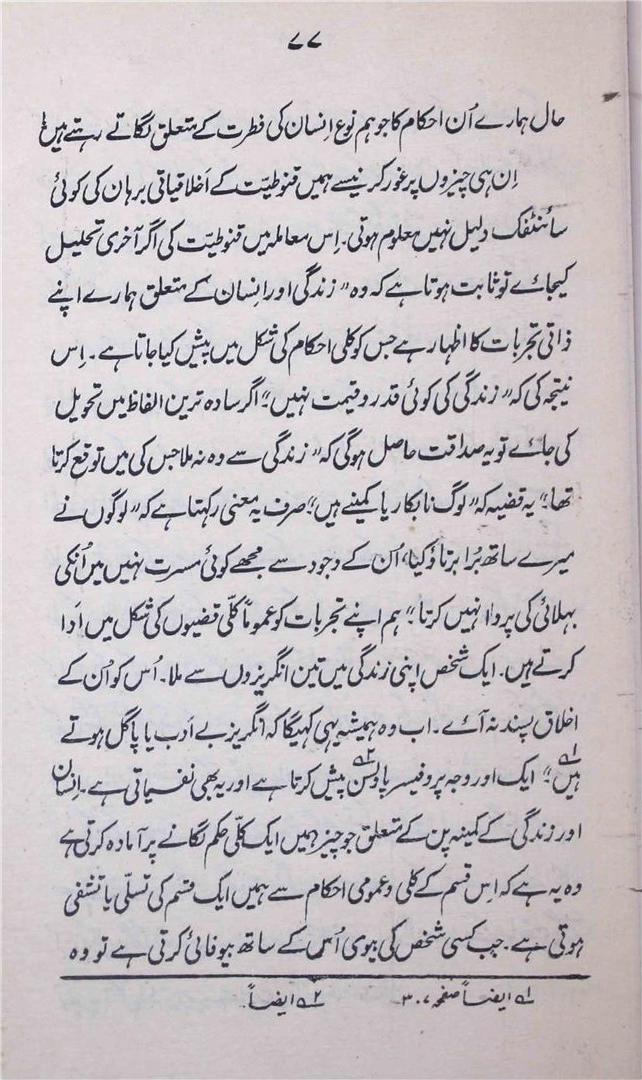 ۷۷
حال ہمارے اُن احکام کا جو ہم نوع اِنسان کی فطرت کے متعلق لگاتے رہتے ہیں!
اِن ہی چیزوں پر غور کرنیسے ہمیں قنوطیّت کے اَخلاقیاتی برہان کی کوئی
سائنٹفک دلیل نہیں معلوم ہوتی۔ اِس معاملہ میں قنوطیّت کی اگر آخری تحلیل
کیجائے تو ثابت ہوتا ہے کہ وہ "زندگی اور اِنسان کے متعلق ہمارے اپنے
ذاتی تجربات کا اظہار ہے جس کو کلی احکام کی شکل میں پیش کیا جاتا ہے۔ اِس
نتیجہ کی کہ "زندگی کی کوئی قدر و قیمت نہیں" اگر سادہ ترین الفاظ میں تحویل
کی جائے تو یہ صداقت حاصل ہوگی کہ "زندگی سے وہ نہ ملا جس کی میں توقع کرتا
تھا" یہ قضیہ کہ "لوگ نابکار یا کمینے ہیں" صرف یہ معنی رکہتا ہے کہ "لوگوں نے
میرے ساتھ بُرا برتاؤ کیا، اُن کے وجود سے مجھے کوئی مسرت نہیں میں اُنکی
بہلائی کی پروا نہیں کرتا" ہم اپنے تجربات کو عموماً کلّی قضیوں کی شکل میں اَدا
کرتے ہیں۔ ایک شخص اپنی زندگی میں تین انگریزوں سے ملا۔ اُس کو اُن کے
اخلاق پسند نہ آئے۔ اب وہ ہمیشہ یہی کہیگا کہ انگریز بے اَدب یا پاگل ہوتے
ہیں" ؎۱ ایک اور وجہ پروفیسر پاولسن ؎۲ پیش کرتا ہے اور یہ بھی نفسیاتی ہے۔ اِنسان
اور زندگی کے کمینہ پن کے متعلق جو چیز ہمیں ایک کلّی حکم لگانے پر آمادہ کرتی ہے
وہ یہ ہے کہ اس قسم کے کلی و عمومی احکام سے ہمیں ایک قسم کی تسلّی یا تشفی
ہوتی ہے۔ جب کسی شخص کی بیوی اُس کے ساتھ بیوفائی کرتی ہے تو وہ
؎۱ ایضاً صفحہ ۳۰۷ ؎۲ ایضاً۔